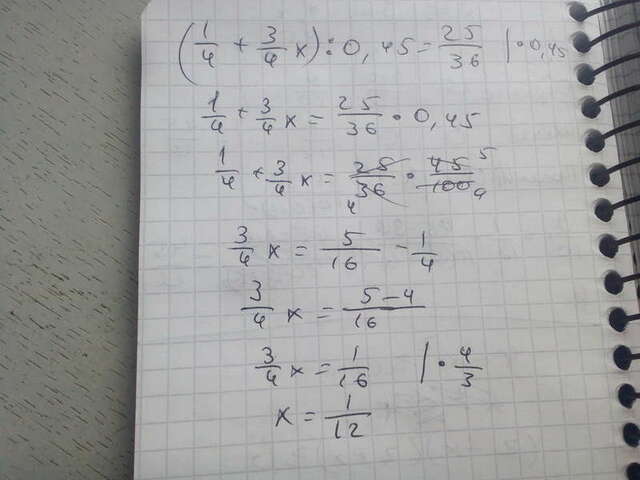 (1/4 + 3/4 x) : 0,45 = 25/36 | · 0,45
1/4 + 3/4 x = 25/36 · 0,45
1/4 + 3/4 x = 25/36 4 · 45/100 5 4
3/4 x = 5/16 - 1/4
3/4 x = 5-4/16
3/4 x = 1/16 | · 4/3
x = 1/12